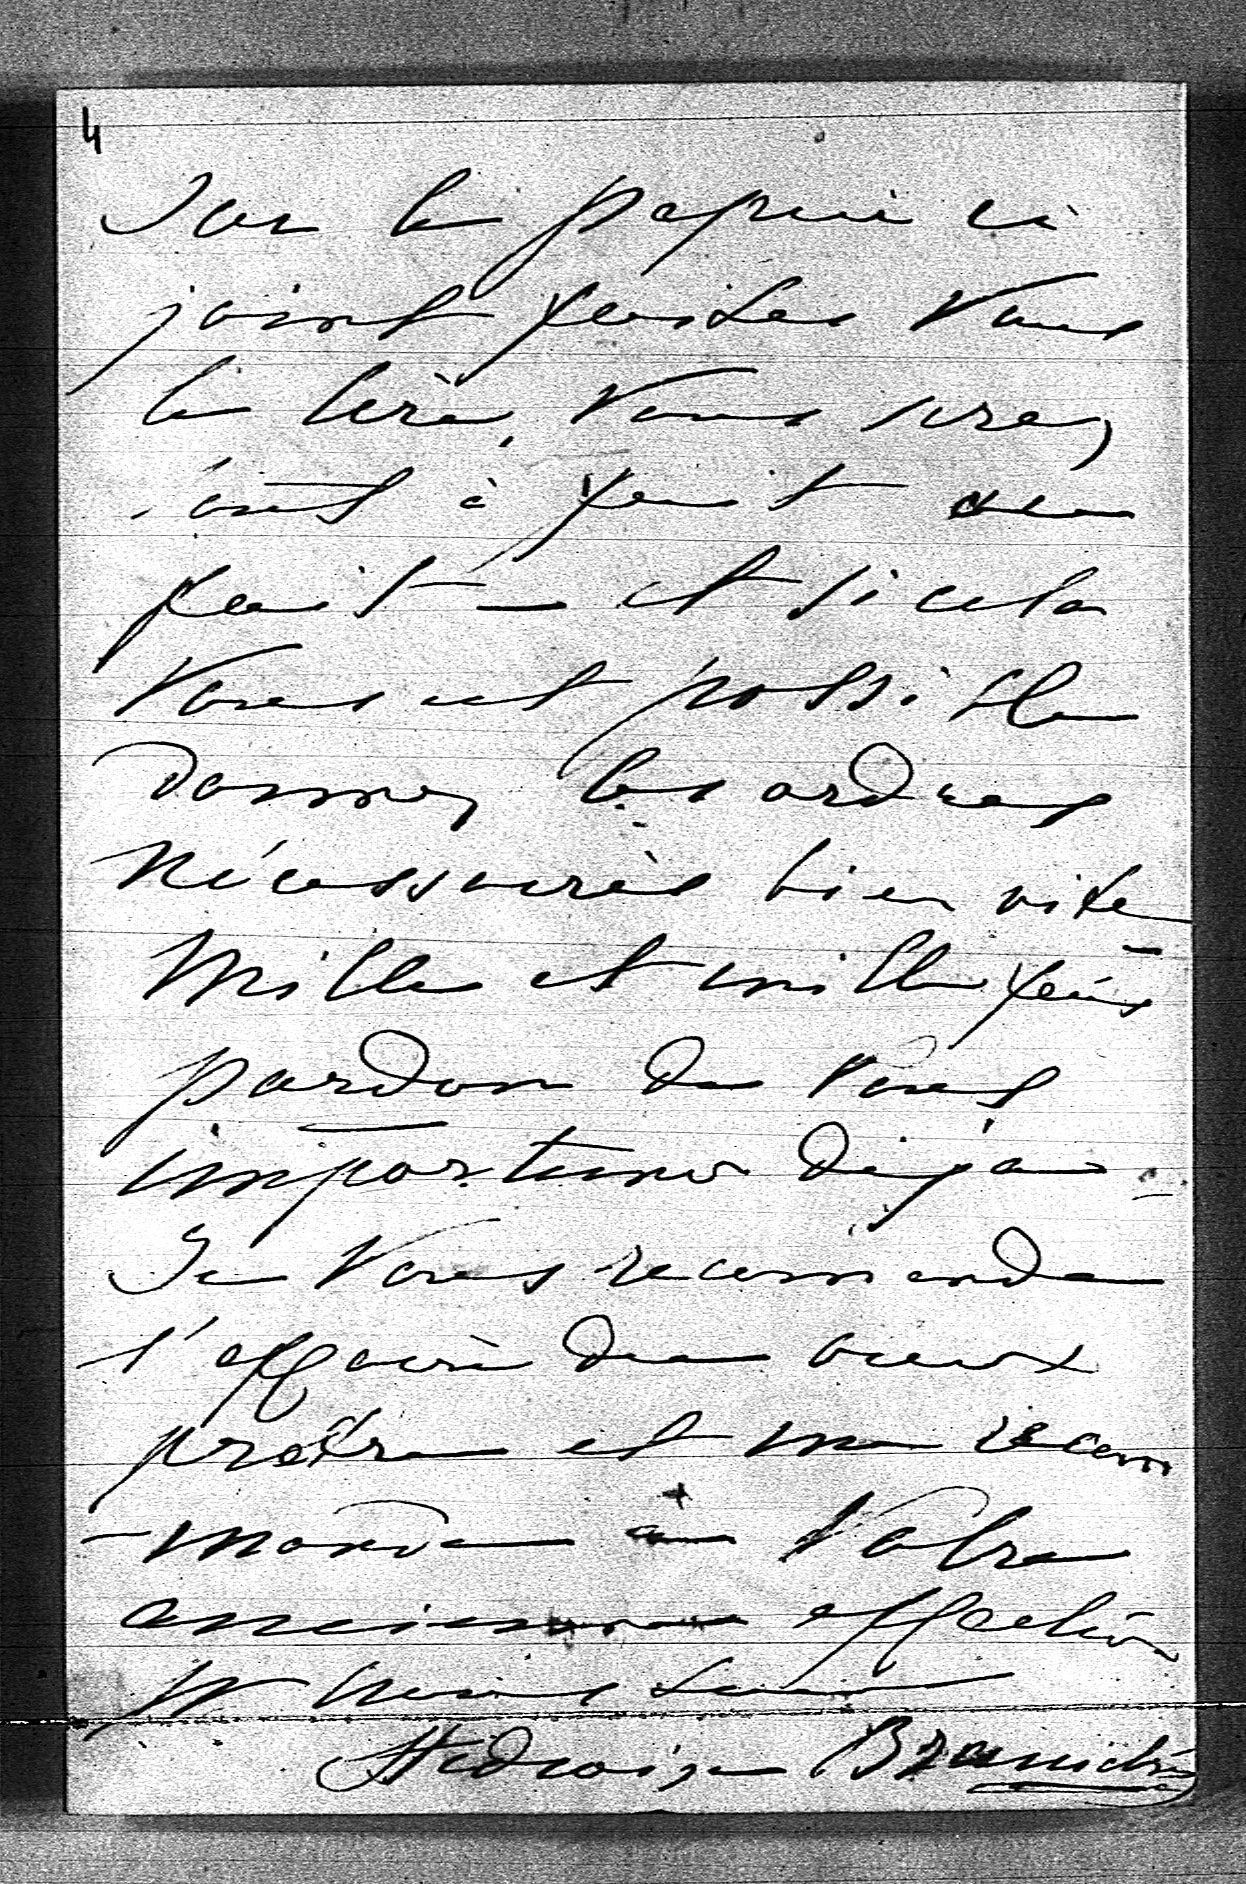 4
Sur le papier ci
joint faites vous
le lire, vous serez
tout à fait au
fait — et si cela
Vous est possible
donnez les ordres
nécessaires bien vite
Mille et mille fois
pardon de vous
importuner déjà
Je Vous recommande
l'affaire du vieux
prêtre et me recom
-mande à Votre
ancienne affection
pr nous tous
Hedwige Branicka